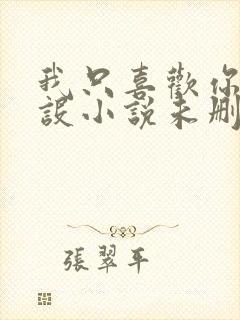 我只喜歡你
設小說未刪
張翠平